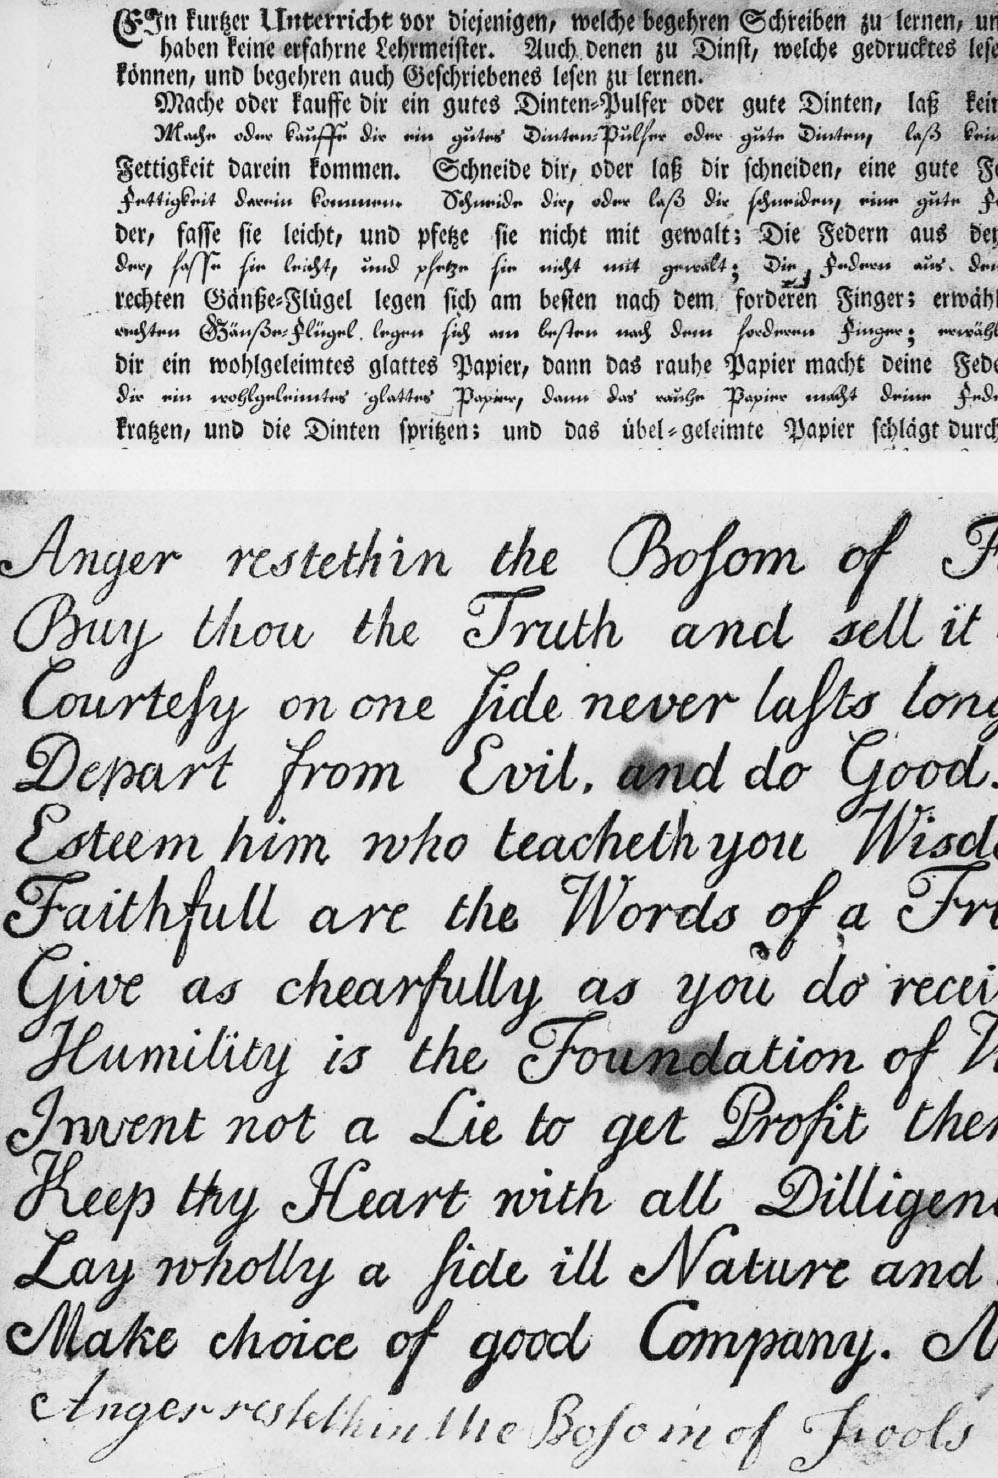 EJn kurtzer Unterricht vor diejenigen, welche begehren Schreiben zu lernen, un
haben keine erfahrne Lehrmeister. Auch denen zu Dinst, welche gedrucktes lese
können, und begehren auch Geschriebenes lesen zu lernen.
Mache oder kauffe dir ein gutes Dinten-Pulfer oder gute Dinten, laß kein
Mache oder kauffe dir ein gutes Dinten-Pulfer oder gute Dinten, laß kein
Fettigkeit darein kommen. Schneide dir, oder laß dir schneiden, eine gute Fe
Fettigkeit darein kommen. Schneide dir, oder laß dir schneiden, eine gute Fe
der, fasse sie leicht, und pfetze sie nicht mit gewalt; Die Federn aus dem
der, fasse sie leicht, und pfetze sie nicht mit gewalt; Die Federn aus dem
rechten Gänße-Flügel legen sich am besten nach dem forderen Finger; erwähl
rechten Gänße-Flügel legen sich am besten nach dem forderen Finger; erwähl
dir ein wohlgeleimtes glattes Papier, dann das rauhe Papier macht deine Fede
dir ein wohlgeleimtes glattes Papier, dann das rauhe Papier macht deine Fede
kratzen, und die Dinten spritzen; und das übel-geleimte Papier schlägt durch
Anger restethin the Boſom of F
Buy thou the Truth and sell it
Courteſy on one ſide never laſts long
Depart from Evil. and do Good.
Esteem him who teacheth you Wisdo
Faithfull are the Words of a Fri
Give as chearfully as you do recei
Humility is the Foundation of V
Invent not a Lie to get Profit ther
Keep thy Heart with all Dilligenc
Lay wholly a ſide ill Nature and
Make choice of good Company. M
Anger restethin the Boſom of Fools